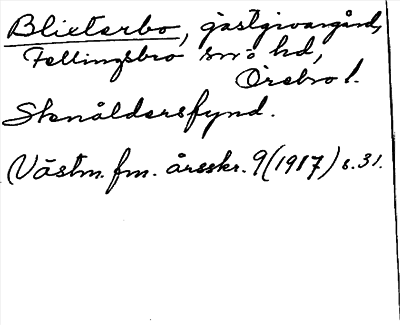 Blixterbo, gästgivargård,
Fellingsbro sn o hd,
Örebro l.
Stenåldersfynd.
Västm. fm. årsskr. 9 (1917) s. 31.